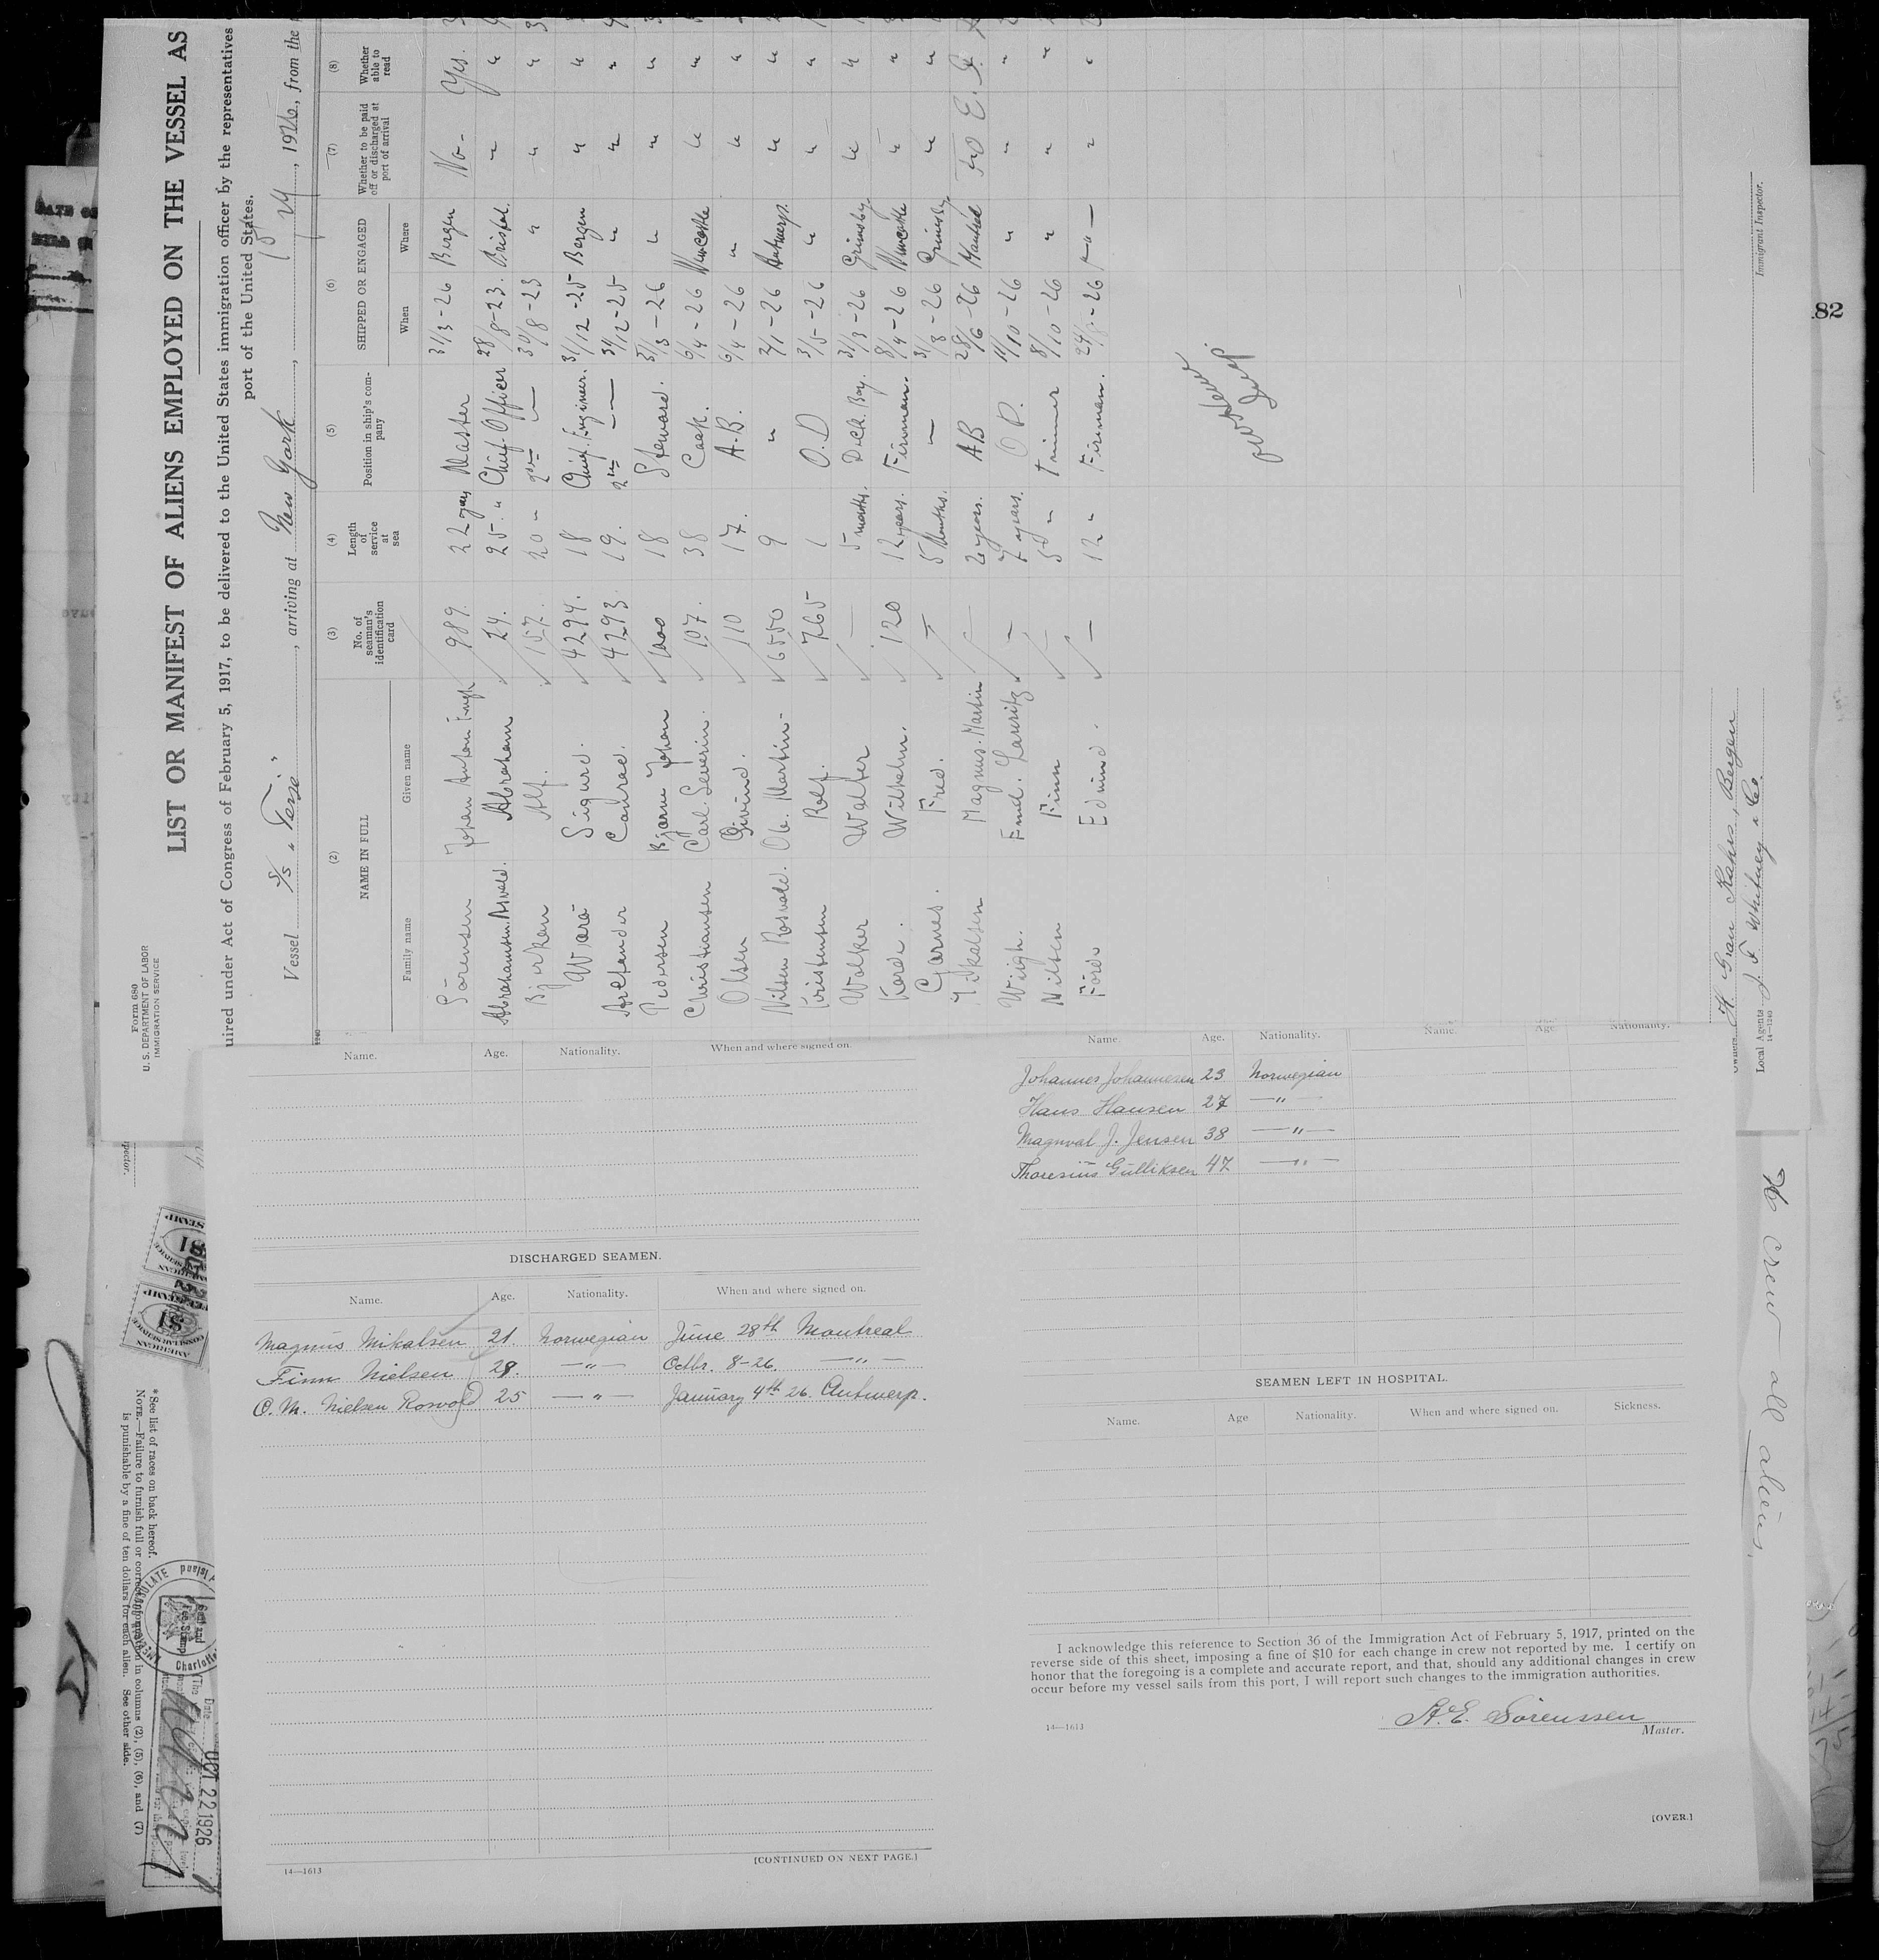 Form 680
U. S. DEPARTMENT OF LABOR
IMMIGRATION SERVICE
LIST OR MANIFEST OF ALIENS EMPLOYED ON THE VESSEL AS
uired under Act of Congress of February 5, 1917, to be delivered to the United States immigration officer by the representatives
port of the United States.
Vessel S/S "Terje", arriving at New York, 1926, from the
(2) (3) (4) (5) (6) (7) (8)
NAME IN FULL No. of seaman's identification card Length of service at sea Position in ship's com-pany SHIPPED OR ENGAGED Whether to be paid off or discharged at port of arrival Whether able to read
Family name Given name When Where
Sörensen Johan Anton 989. 22 years Master 31/3-26 Bergen No- Yes.
Abrahamsen Abraham 24. 25. " Chief Officer 28/8-23 Bristol. " "
Bjerken Alf. 157. 20 " 2nd — 30/8-23 " " "
Sigurd. 4294. 18 Chief Engineer. 31/12-25 Bergen " "
Conrad. 4293. 19. 2nd — 31/12-25 " " "
Pedersen Bjarne Johan 1000 18 Steward. 31/3-26 " " "
Christiansen Carl Severin. 107. 38 Cook. 6/4-26 Newcastle " "
Olsen Eivind. 110 17. A.B. 6/4-26 " " "
Nilsen Rosvold. Ole. Martin- 6550 9 " 4/1-26 Antwerp. " "
Kristensen Rolf. 765 1 O.D 3/5-26 " " "
Walker Walter — 5 months. Deck Boy. 31/3-26 Grimsby. " "
Wilhelm. 120 12 years. Fireman. 8/4-26 Newcastle " "
Garnes. Fred. — 5 Months. — 31/3-26 Grimsby " "
Mikalsen Magnus. Martin — 2 years. AB 28/6-26 Montreal
Weigh. Emil. Lauritz — 7 years. O D. 11/10-26 " " "
Nilsen Finn — 5 " Trimmer 8/10-26 " " "
Förde Edvind. — 12 " Fireman. 24/8-26 — " — " "
H. Gran Bergen
Local Agents J. F. Whitney & Co.
14—1240
Immigrant Inspector.
82
Name. Age. Nationality. When and where signed on.
DISCHARGED SEAMEN.
Name. Age. Nationality. When and where signed on.
Magnus Mikalsen 21. Norwegian June 28th Montreal
Finn Nielsen 28. —"— Octbr. 8-26. —"—
O. M. Nielsen Rosvold 25 —"— January 4th 26. Antwerp.
[CONTINUED ON NEXT PAGE.]
14—1613
Name. Age. Nationality. Name. Age Nationality.
Johannes Johannesen 23 Norwegian
Hans Hansen 27 —"—
Magnval J. Jensen 38 —"—
Thoresius Gulliksen 47 —"—
SEAMEN LEFT IN HOSPITAL.
Name. Age Nationality. When and where signed on. Sickness.
I acknowledge this reference to Section 36 of the Immigration Act of February 5, 1917, printed on the
reverse side of this sheet, imposing a fine of $10 for each change in crew not reported by me. I certify on
honor that the foregoing is a complete and accurate report, and that, should any additional changes in crew
occur before my vessel sails from this port, I will report such changes to the immigration authorities.
A. E. Sörenssen
Master.
14—1613
[OVER.]
crew all aliens,
* See list of races on back hereof.
NOTE.—Failure to furnish full or correct information in columns (2), (5), (6), and (7)
is punishable by a fine of ten dollars for each alien. See other side.
OCT 22 1926